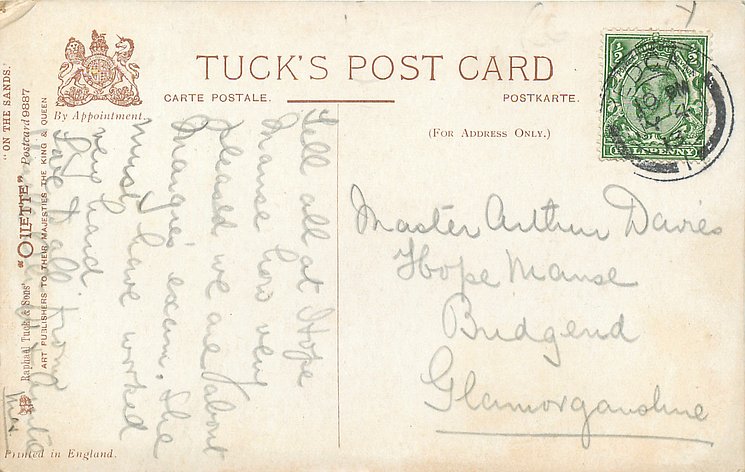 TUCK'S POST CARD
CARTE POSTALE.
POSTKARTE.
By Appointment.
(FOR ADDRESS ONLY.)
"ON THE SANDS."
Raphael Tuck & Sons' "OILETTE" Postcard 9887
ART PUBLISHERS TO THEIR MAJESTIES THE KING & QUEEN
Printed in England.
½ ½
HALFPENNY
10 PM
13
Tell all at Hope
Manse how very
pleased we are about
Margie's exam. She
must have worked
very hard
Love to all from
Master Arthur Davies
Hope Manse
Bridgend
Glamorganshire